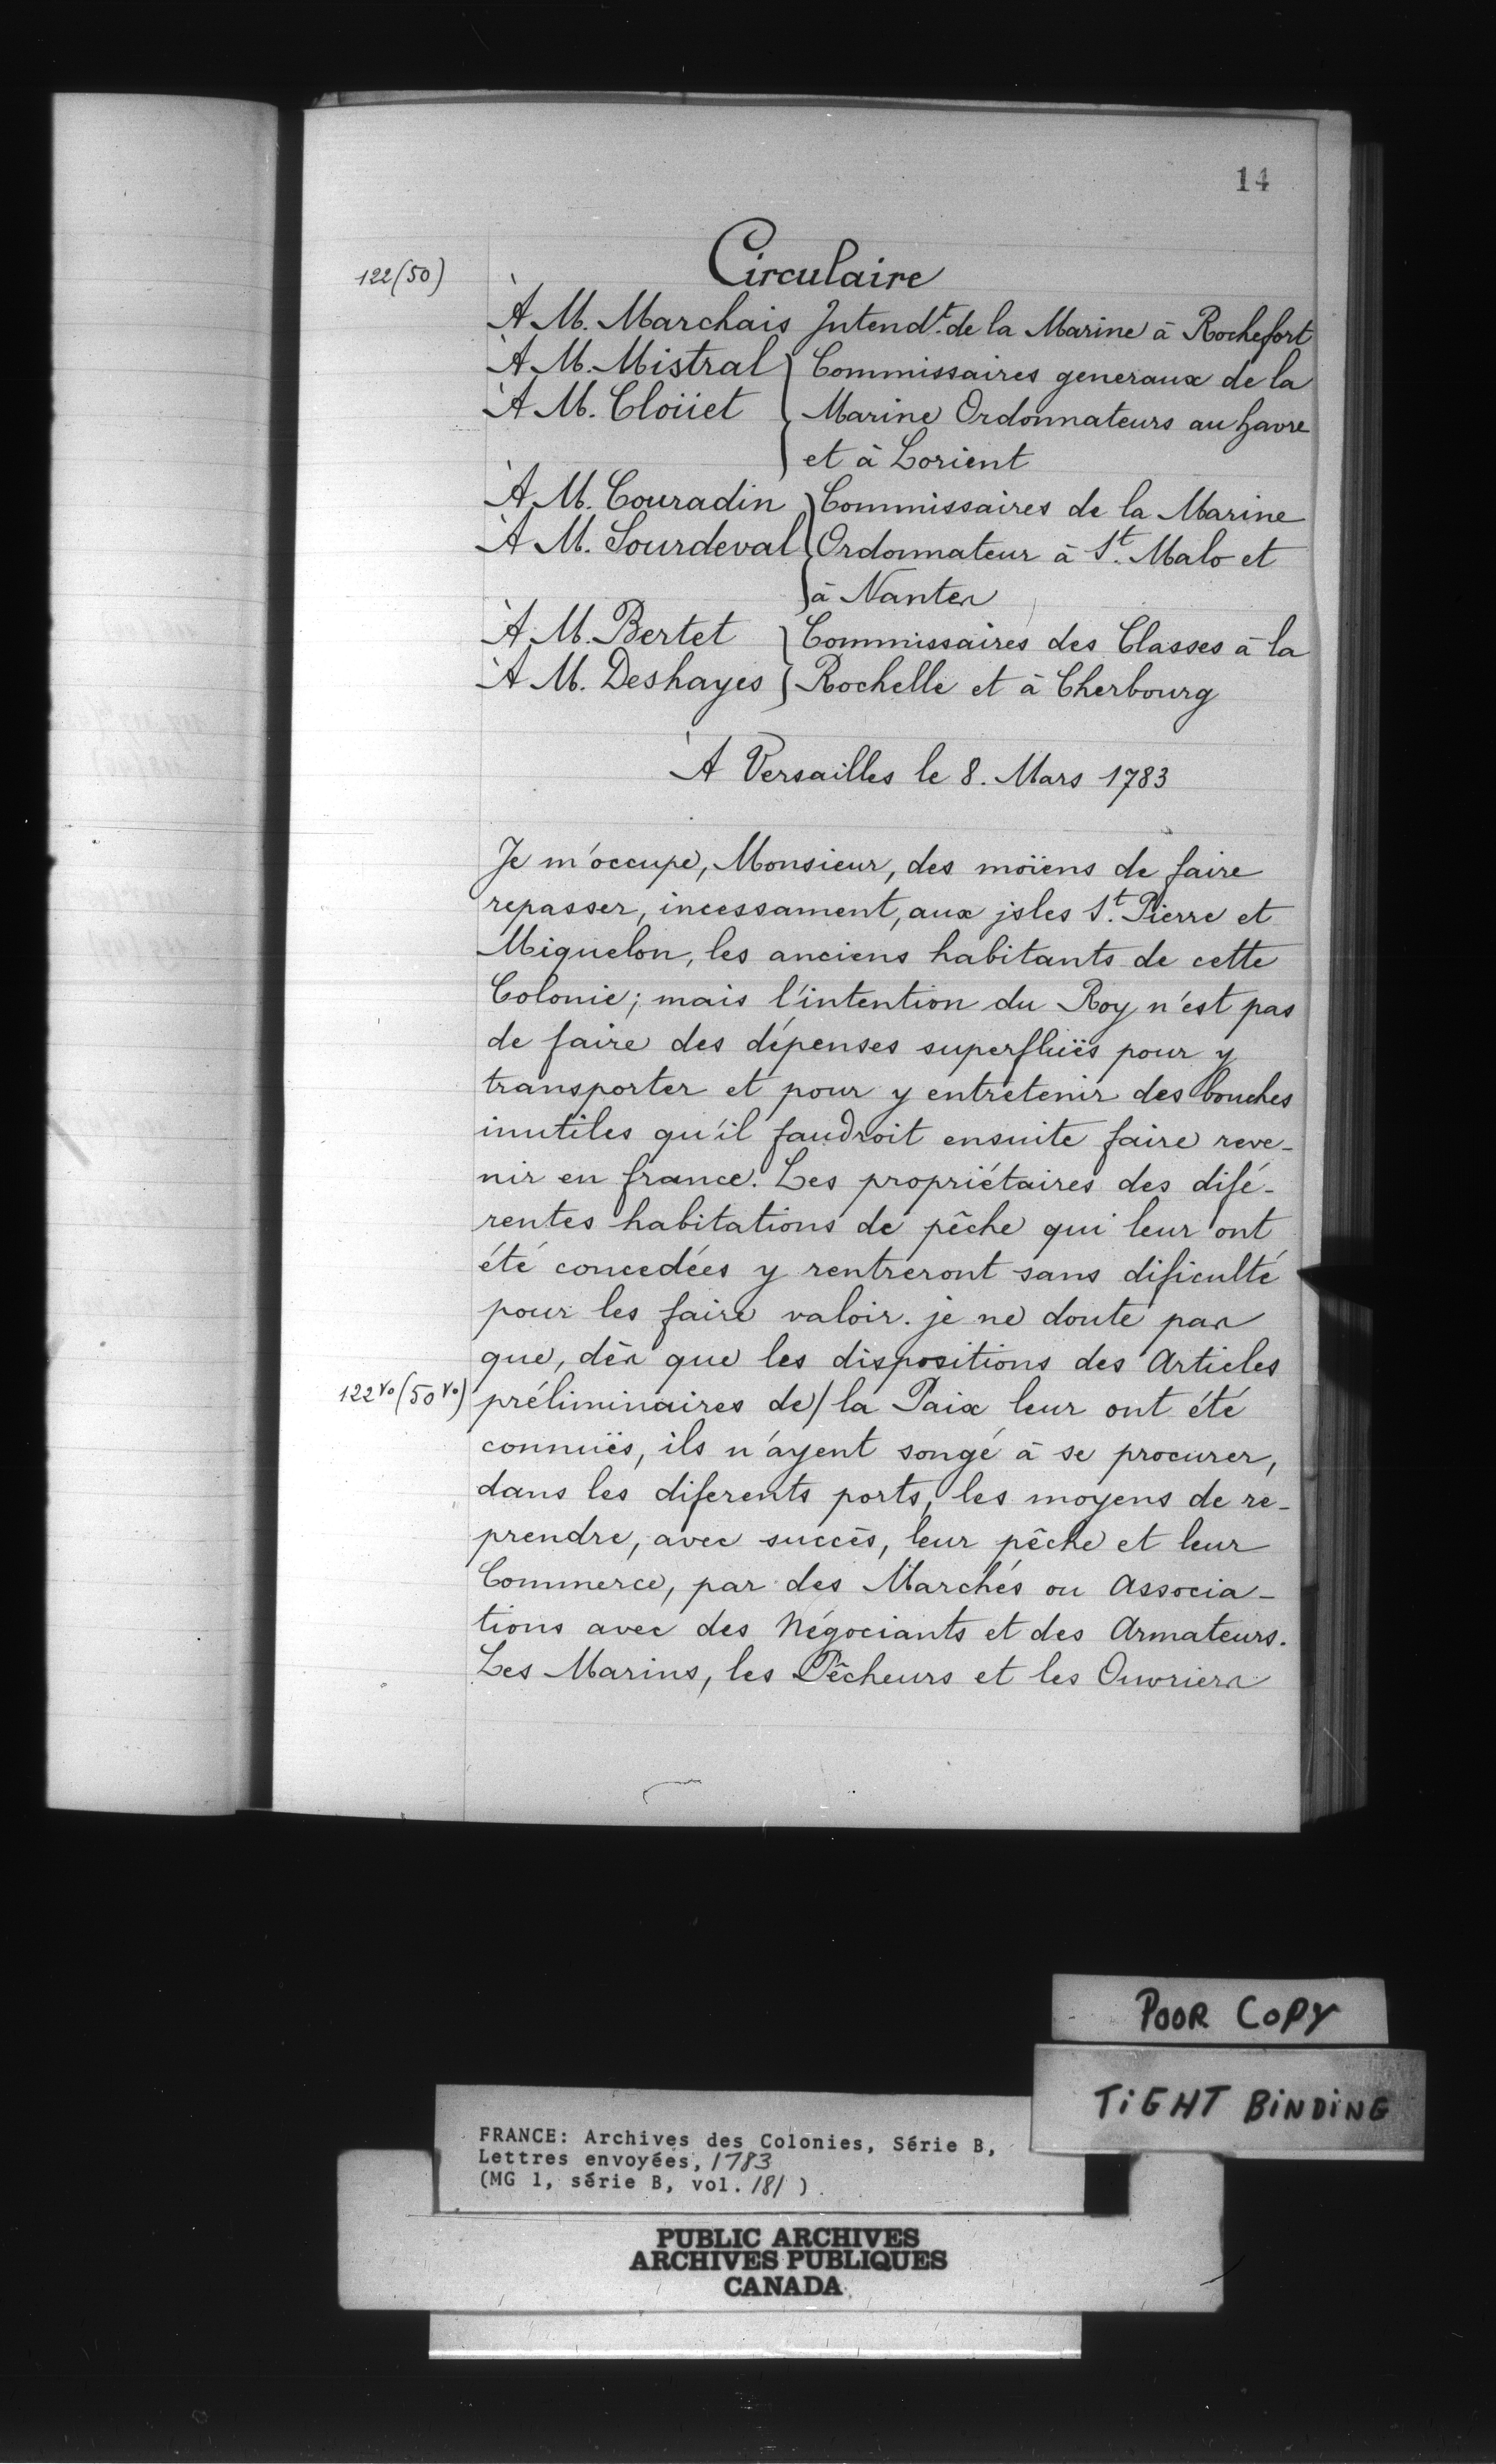 14
122 (50)
Circulaire
À M. Marchais Intendt. de la Marine à Rochefort
À M. Mistral } Commissaires generaux de la
À M. Cloüet } Marine Ordonnateurs au havre
et à Lorient
À M. Couradin } Commissaires de la Marine
À M. Sourdeval } Ordonnateur à St. Malo et
à Nantes
À M. Bertet } Commissaires des Classes à la
À M. Deshayes } Rochelle et à Cherbourg
À Versailles le 8. Mars 1783
Je m'occupe, Monsieur, des moïens de faire
repasser, incessament, aux jsles St. Pierre et
Miquelon, les anciens habitants de cette
Colonie; mais l'intention du Roy n'est pas
de faire des dépenses superfluës pour y
transporter et pour y entretenir des bouches
inutiles qu'il faudroit ensuite faire reve-
nir en france. Les propriétaires des difé-
rentes habitations de pêche qui leur ont
été concedées y rentreront sans dificulté
pour les faire valoir. je ne doute pas
que, dès que les dispositions des Articles
122 vo (50 vo) préliminaires de/ la Paix leur ont été
connuës, ils n'ayent songé à se procurer,
dans les diferents ports, les moyens de re-
prendre, avec succès, leur pêche et leur
Commerce, par des Marchés ou Associa-
tions avec des Négociants et des Armateurs.
Les Marins, les Pêcheurs et les Ouvriers
POOR COPY
TIGHT BINDING
FRANCE: Archives des Colonies, Série B,
Lettres envoyées, 1783
(MG 1, série B, vol. 181 )
PUBLIC ARCHIVES
ARCHIVES PUBLIQUES
CANADA